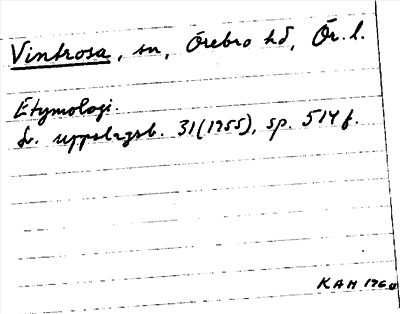 Vintrosa, sn, Örebro hd, Ör. l.
Etymologi.
Sv. uppslagsb. 31(1955), sp. 514 f.
KAH 196